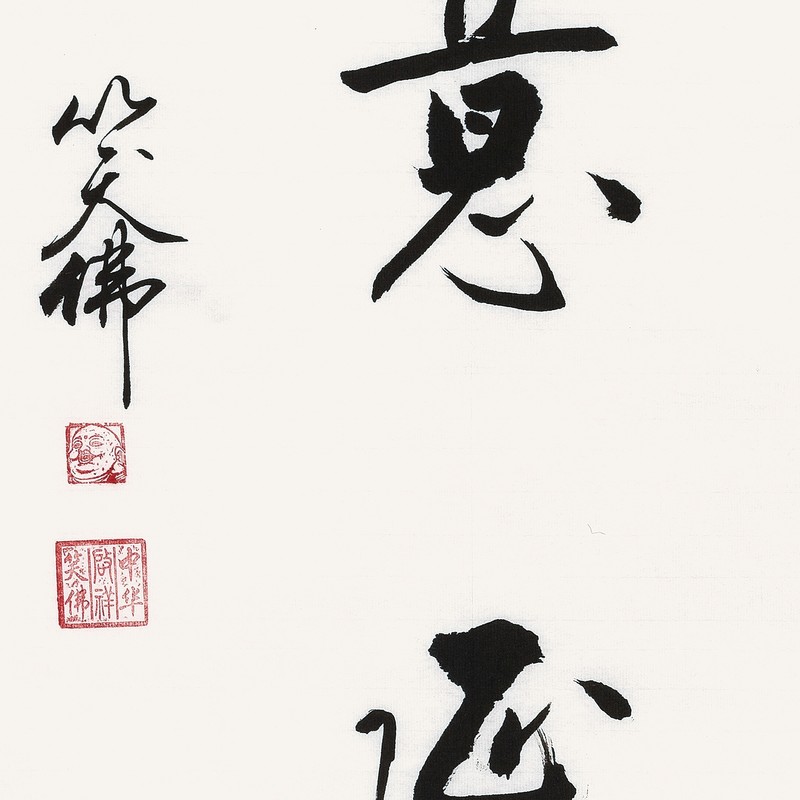 意
笑佛
中华
啟祥
笑佛